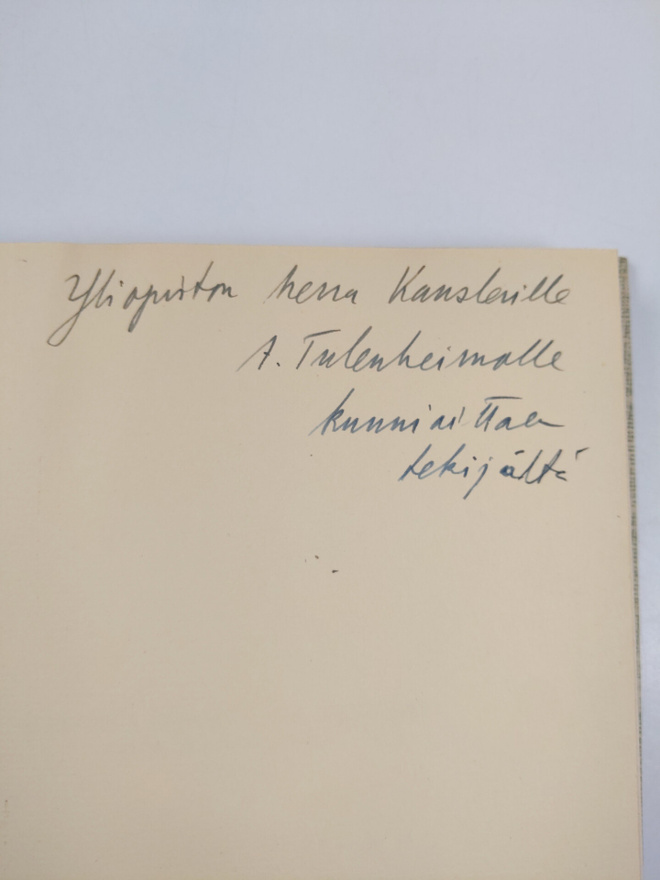 Yliopiston herra Kanslerille
A. Tulenheimolle
kunnioittaen
tekijältä